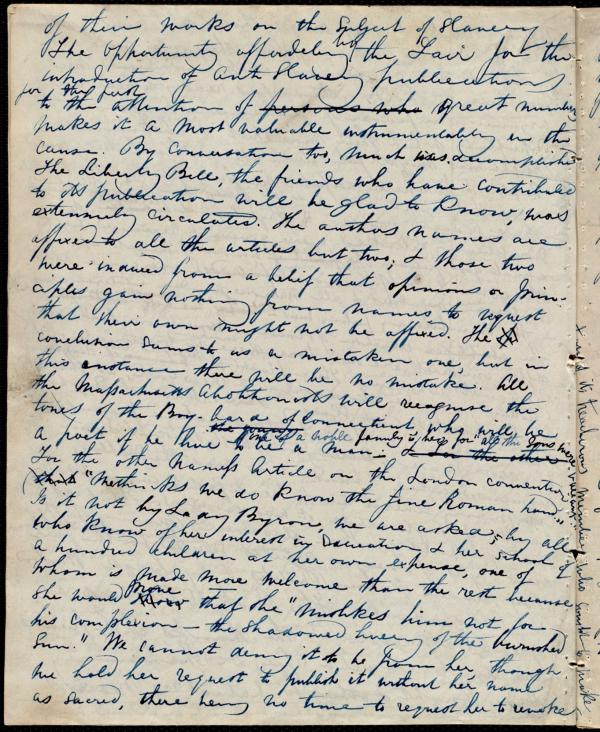 of their works on the Subject of Slavery
The opportunity afforded by the Fair for the
introduction of Anti Slavery publications
for the first
to the attention of persons who great numbers
makes it a most valuable instrumentality in the
cause. By conversation too, much was accomplished
The Liberty Bell, the friends who have contributed
to its publication will be glad to know, was
extensively circulated. The authors names are
affixed to all the articles but two; & those two
were induced from a belief that opinions or prin-
ciples gain nothing from names to request
that their own might not be affixed. The
conclusion seems to us a mistaken one, but in
this instance there will be no mistake. All
the Massachusetts Abolitionists will recognise the
tones of the Boy-bard of Connecticut, who will be
the younger
one of a noble family is he, for "all the sons were valiant."
a poet if he live to be a man: & in the other
For the other nameless Article on the London convention
that "Methinks we do know the fine Roman hand."
Is it not by Lady Byron, we are asked, by all
who know of her interest in Education & her School of
a hundred children at her own expense, one of
whom is made more welcome than the rest because
She would prove that she "mislikes him not for
his complexion – the shadowed livery of the burnished
Sun." We cannot deny it to be from her, though
we hold her request to publish it without her name
as sacred, there being no time to request her to revoke